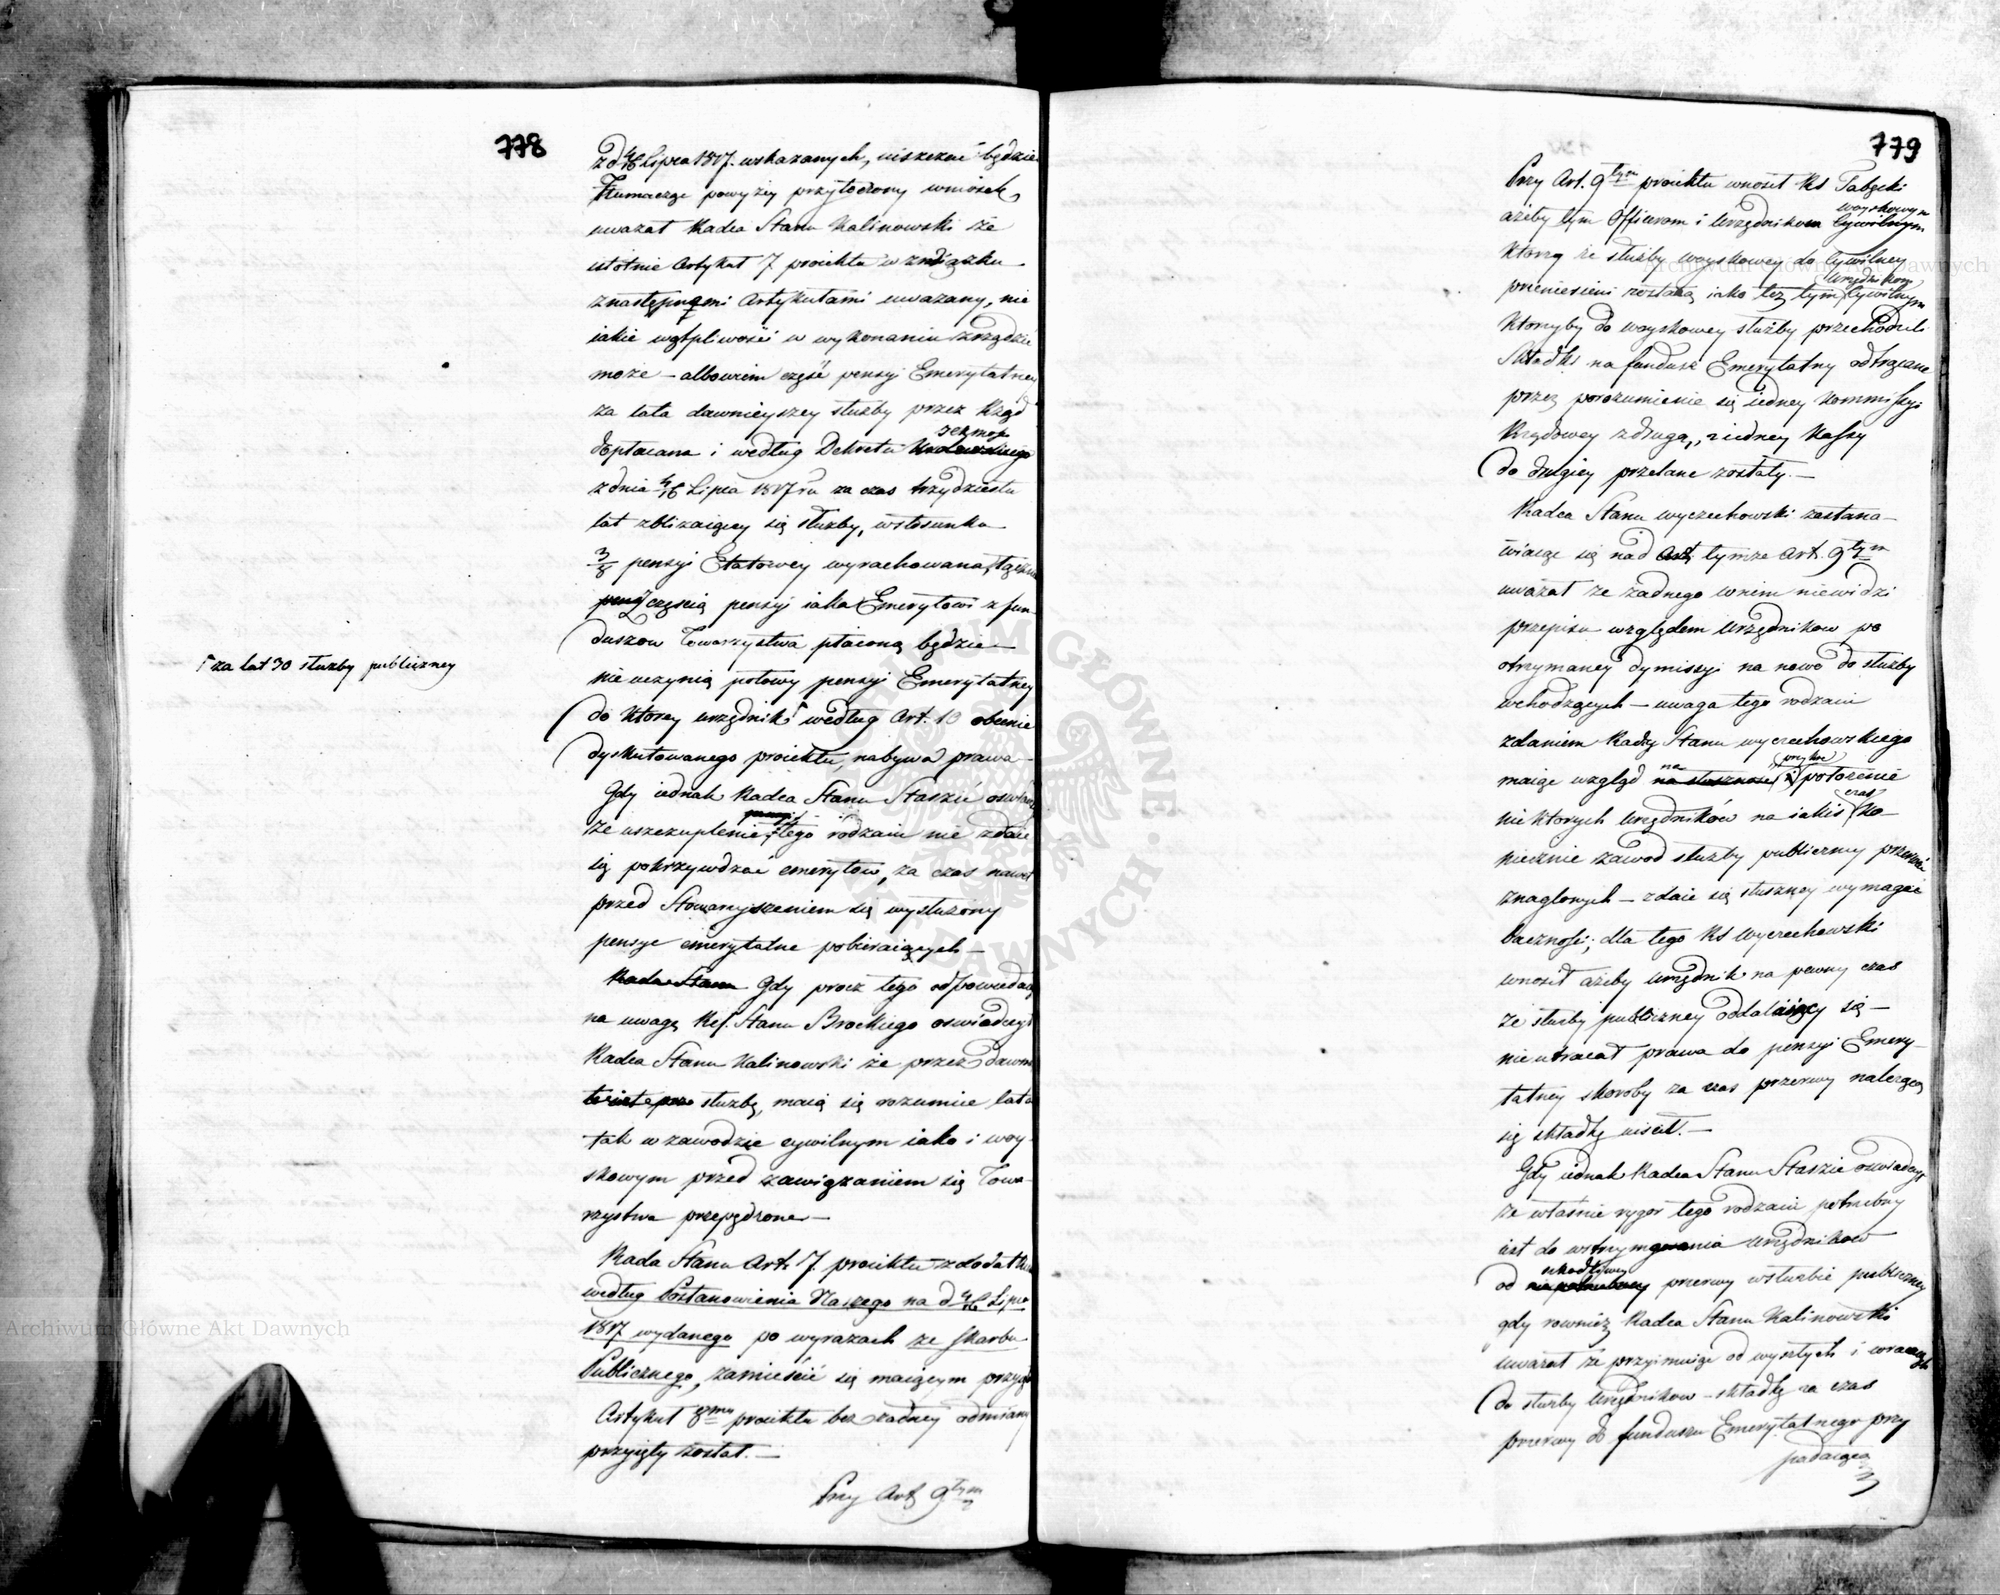 778
z d 4/16 Lipca 1817. wskazanych, uiszczać będzie
Tłumacząc powyżey przytoczony wniosek,
uważał Radca Stanu Kalinowski że
istotnie Artykuł 7 proiektu w związku
z następnemi Artykułami uważany, nie
iakie wątpliwości w wykonaniu zrządzić
może – albowiem część pensyi Emerytalney
za lata dawnieyszey służby przez Rząd
dopłacana i według Dekretu Królewskiego
z dnia 4/16 Lipca 1817 ru za czas trzydziestu
lat zbliżaiącey się służby, w stosunku
3/8 pensyi Etatowey wyrachowana, łącznie
częścią pensyi iaka Emerytowi z fun
duszow Towarzystwa płaconą będzie –
nie uczynią połowy pensyi Emerytalney
do ktorey urzędnik według Art. 10 obecnie
dyskutowanego proiektu, nabywa prawa –
Γ za lat 30 służby publiczney
Gdy iednak Radca Stanu Staszic oświadczył
że uszczuplenie tego rodzaiu nie zdaie
się pokrzywdzać emerytow, za czas nawet
przed Stowarzyszeniem się wysłużony
pensye emerytalne pobieraiących –
Rada Stanu Gdy procz tego odpowiadaiąc
na uwagę Ref. Stanu Brockiego oświadczył
Radca Stanu Kalinowski że przez dawną
służbę, maią się rozumieć lata
tak w zawodzie cywilnym iako i woy
skowym przed zawiązaniem się Towa
rzystwa przepędzone –
Rada Stanu Art. 7. proiektu z dodatkiem
według Postanowienia Naszego na d 4/16 Lipca
1817 wydanego po wyrazach ze Skarbu
Publicznego, zamieścić się maiącym przyięła
Artykuł 8my proiektu bez żadney odmiany
przyięty został. –
Przy Art. 9tym
779
Przy Art. 9tym proiektu wnosił RS Tabęcki
woyskowym
ażeby tym Officerom i Urzędnikom Cywilnym
którzy ze służby woyskowey do Cywilney
Urzędnikom
przeniesieni zostaną iako też tym Cywilnym
ktorzyby do woyskowey służby przechodzili
Składki na fundusz Emerytalny odtrącane
przez porozumienie się iedney Kommissyi
Rządowey z drugą, z iedney Kassy
do drugiey przelane zostały. –
Radca Stanu Wyczechowski zastana–
wiaiąc się nad Art. tymże Art. 9tym
uważał że żadnego w nim niewidzi
przepisu względem Urzędnikow po
otrzymaney dymissyi na nowo do służby
wchodzących – uwaga tego rodzaiu
zdaniem Radcy Stanu Wyczechowskiego
na przykre
maiąc wzgląd na słuszność i położenie
czas
niektorych Urzędników na iakiś ko–
niecznie zawod służby publiczney przerwać
znaglonych – zdaie się słuszney wymagać
baczności; dla tego RS Wyczechowski
wnosił ażeby urzędnik na pewny czas
ze służby publiczney oddalaiący się –
nie utracał prawa do pensyi Emery–
talney skoroby za czas przerwy należącą
się składkę uiścił. –
Gdy iednak Radca Stanu Staszic oświadczył
że właśnie rygor tego rodzaiu potrzebny
iest do wstrzymywania Urzędnikow
szkodliwey
od niepotrzebney przerwy w służbie publiczney
gdy rownież Radca Stanu Kalinowski
uważał że przyimuiąc od wyszłych i wracaiących
do służby Urzędnikow – składkę za czas
przerwy do funduszu Emerytalnego przy
padaiącą